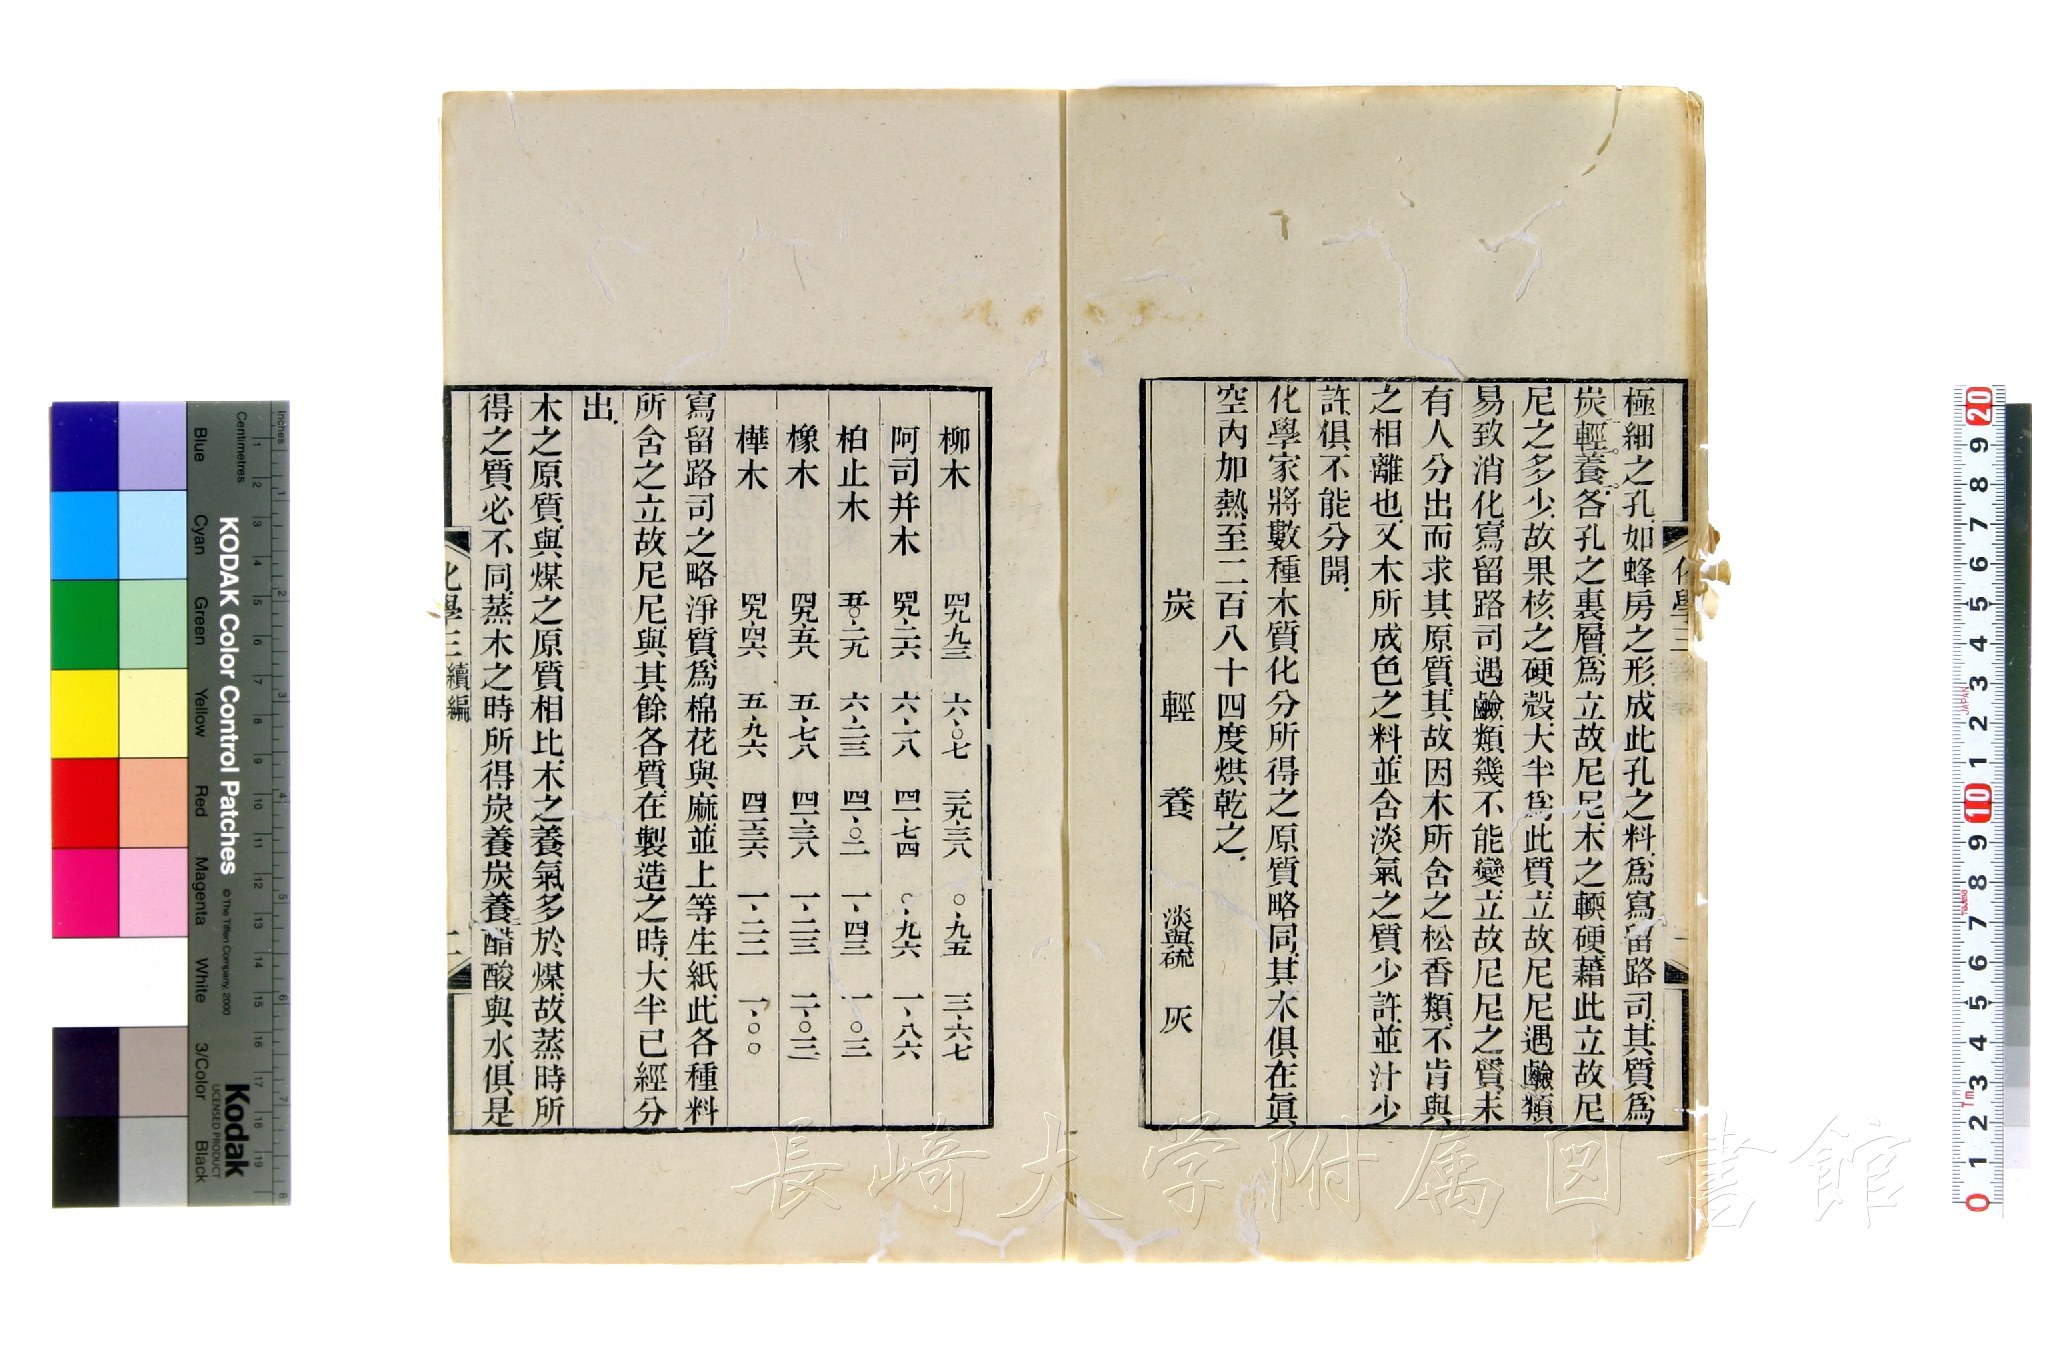 極細之孔如蜂房之形成此孔之料爲寫留路司其質爲
炭輕養各孔之裏層爲立故尼尼木之輭硬藉此立故尼
尼之多少故果核之硬殼大半爲此質立故尼尼遇鹼類
易致消化寫留路司遇鹼類幾不能變立故尼尼之質未
有人分出而求其原質其故因木所含之松香類不肯與
之相離也又木所成色之料並含淡氣之質少許並汁少
許俱不能分開
化學家將數種木質化分所得之原質略同其木俱在眞
空內加熱至二百八十四度烘乾之
炭 輕 養 淡與硫 灰
柳木 四九九三 六〇七 三九三八 〇九五 三六七
阿司并木 四九二六 六一八 四一七四 〇九六 一八六
柏止木 五〇二九 六二三 四一〇二 一四三 一〇三
橡木 四九五八 五七八 四一三八 一二三 二〇三
樺木 四九四六 五九六 四二三六 一二二 一〇〇
寫留路司之略淨質爲棉花與麻並上等生紙此各種料
所含之立故尼尼與其餘各質在製造之時大半已經分
出
木之原質與煤之原質相比木之養氣多於煤故蒸時所
得之質必不同蒸木之時所得炭養炭養二醋酸與水俱是
化學三 續編
二
化學三
KODAK Color Control Patches
© The Tiffen Company, 2000
Kodak
LICENSED PRODUCT
Inches
Centimetres
Blue
Cyan
Green
Yellow
Red
Magenta
White
3/Color
Black
長崎大学附属図書館
JAPAN
20 9 8 7 6 5 4 3 2 1 10 9 8 7 6 5 4 3 2 1 0